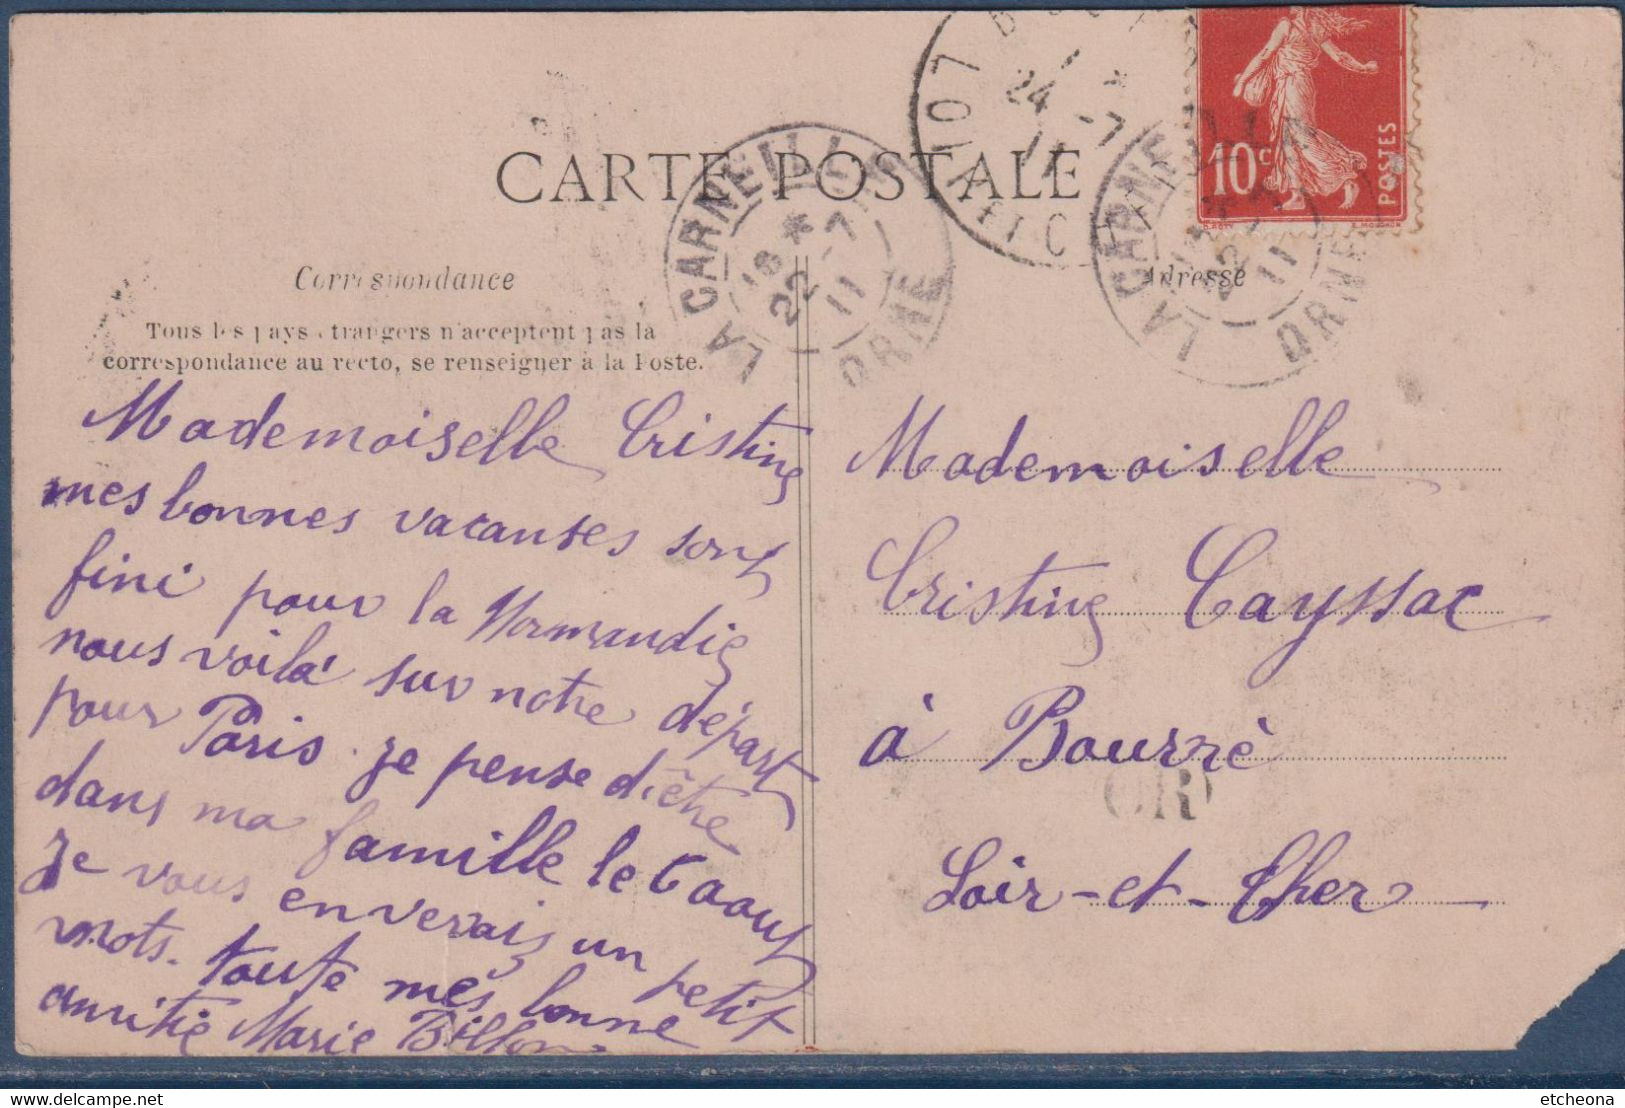 CARTE POSTALE
Correspondance
Tous les pays étrangers n'acceptent pas la
correspondance au recto, se renseigner à la Poste.
Mademoiselle Cristine
mes bonnes vacanses sont
fini pour la Normandie
nous voilà sur notre départ
pour Paris. je pense dêtre
dans ma famille le 6 aout
je vous enverais un petit
mots. toute mes bonne
amitié Marie Billon
Adresse
Mademoiselle
Cristine Cayssac
à Bourré
Loir-et-Cher
OR
LA CARNEILLE
18 *
22 -7
11
ORNE
24 -7
11
LOIR-ET-CHER
LA CARNEILLE
22
11
ORNE
10c
POSTES
O. ROTY
E. MOUCHON
etcheona